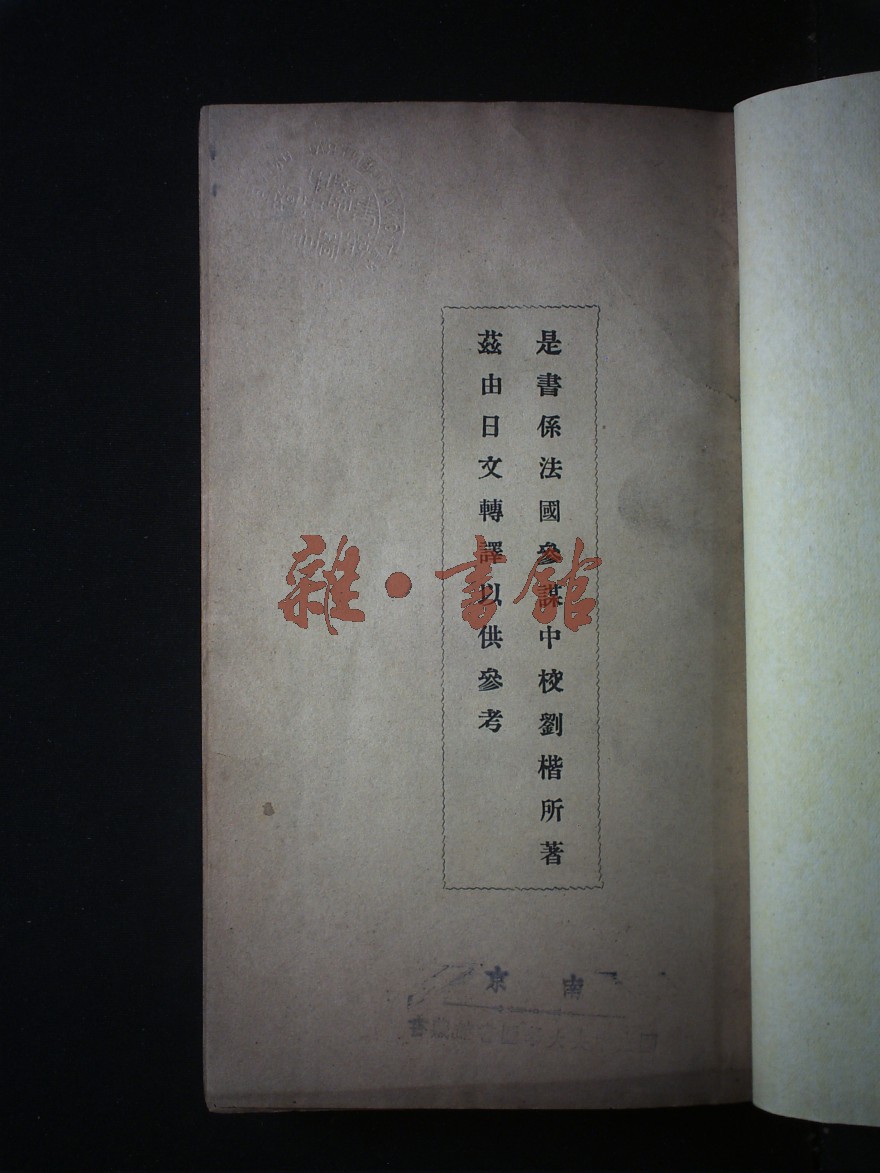 是書係法國參謀中校劉楷所著
茲由日文轉譯以供參考
雜·書館
南京